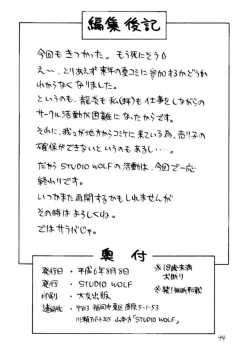 編集後記
今回もきつかった。もう死にそう
え〜、とりあえず来年の夏コミに参加するかどうか
わからなくなりました。
というのも、龍炎も私(拝)も仕事をしながらの
サークル活動が困難になったからです。
それに、我々が地方からコミケに来ている為、売り子の
確保ができないというのもあるし・・・。
だから STUDIO WOLFの活動は、今回で一応
終わりです。
いつかまた再開するかもしれませんが
その時はよろしくね。
ではサラバじゃ。
奥付
発行日・平成6年8月8日
発行・STUDIO WOLF
印刷・大友出版
連絡先・〒813 福岡市東区唐原5-1-53
山本方「STUDIO WOLF」
※18歳未満
お断り
※禁!無断転載
44